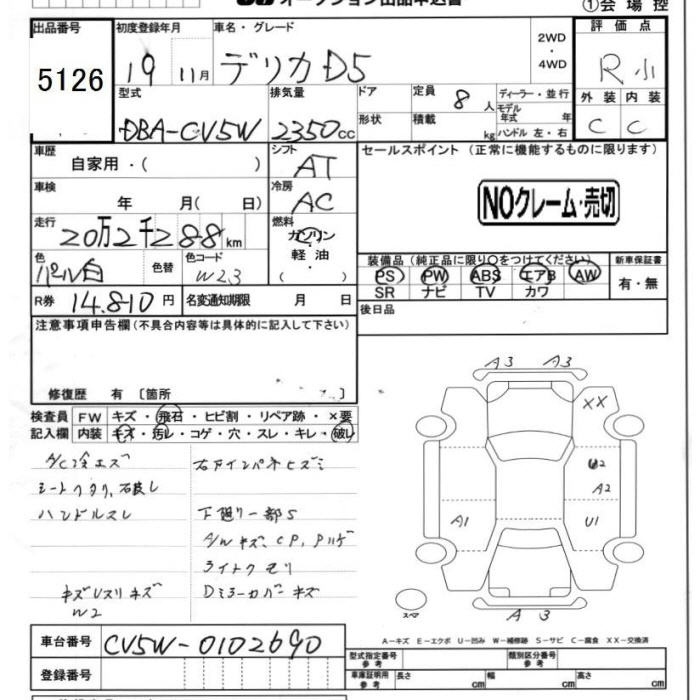 オークション出品申込書
①会場控
出品番号
5126
初度登録年月
19 11月
車名・グレード
デリカD5
2WD
・
4WD
評価点
R小
型式
DBA-CV5W
排気量
2350cc
ドア
形状
定員 8人
積載 kg
ディーラー・並行
モデル年式 年
ハンドル 左・右
外装 内装
C C
車歴
自家用・( )
シフト
AT
セールスポイント (正常に機能するものに限ります)
NOクレーム・売切
車検
年 月( 日)
冷房
AC
走行
20万2千288km
燃料
ガソリン
・
軽油
( )
色
パール白
色替
色コード
W23
装備品(純正品に限り○をつけてください)
PS PW ABS エアB AW
SR ナビ TV カワ
新車保証書
有・無
R券 14,810円
名変通知期限 月 日
後日品
注意事項申告欄(不具合内容等は具体的に記入して下さい)
修復歴 有〔箇所 〕
検査員
記入欄
FW キズ・飛石・ヒビ割・リペア跡・×要
内装 キズ・汚レ・コゲ・穴・スレ・キレ・破レ
シートヘタリ,
ハンドルスレ
下廻り一部S
A/Wキズ,
W2
A3 A3
XX
A2
A1 U1
A 3
スペア
A-キズ E-エクボ U-凹み W-補修跡 S-サビ C-腐食 XX-交換済
車台番号 CV5W-0102690
登録番号
型式指定番号
参考
類別区分番号
参考
車庫証明用
参考
長さ cm 幅 cm 高さ cm